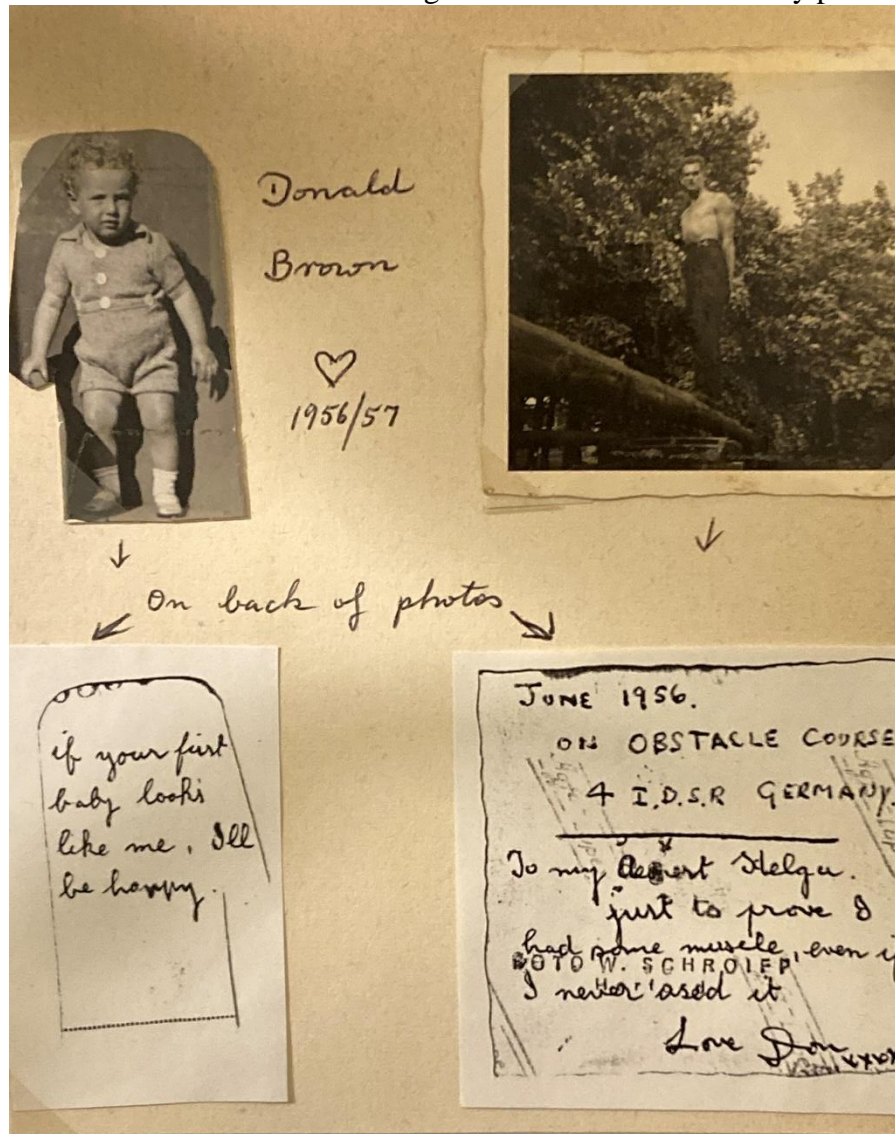 Donald
Brown
1956/57
On back of photos
if your first
baby looks
like me, I'll
be happy.
JUNE 1956.
ON OBSTACLE COURSE
4 I.D.S.R GERMANY.
To my dearest Helga.
just to prove I
had some muscle, even if
I never used it
Love Don xxxx